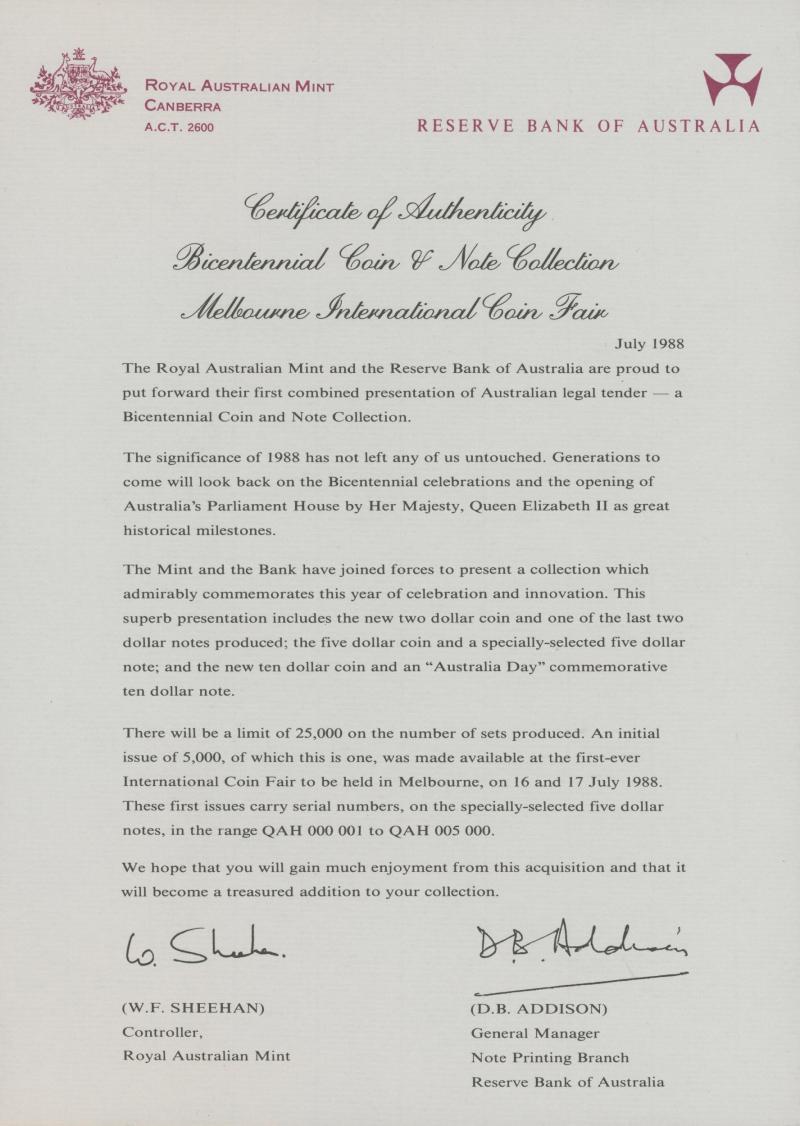 ROYAL AUSTRALIAN MINT
CANBERRA
A.C.T. 2600
RESERVE BANK OF AUSTRALIA
Certificate of Authenticity
Bicentennial Coin & Note Collection
Melbourne International Coin Fair
July 1988
The Royal Australian Mint and the Reserve Bank of Australia are proud to
put forward their first combined presentation of Australian legal tender — a
Bicentennial Coin and Note Collection.
The significance of 1988 has not left any of us untouched. Generations to
come will look back on the Bicentennial celebrations and the opening of
Australia's Parliament House by Her Majesty, Queen Elizabeth II as great
historical milestones.
The Mint and the Bank have joined forces to present a collection which
admirably commemorates this year of celebration and innovation. This
superb presentation includes the new two dollar coin and one of the last two
dollar notes produced; the five dollar coin and a specially-selected five dollar
note; and the new ten dollar coin and an “Australia Day” commemorative
ten dollar note.
There will be a limit of 25,000 on the number of sets produced. An initial
issue of 5,000, of which this is one, was made available at the first-ever
International Coin Fair to be held in Melbourne, on 16 and 17 July 1988.
These first issues carry serial numbers, on the specially-selected five dollar
notes, in the range QAH 000 001 to QAH 005 000.
We hope that you will gain much enjoyment from this acquisition and that it
will become a treasured addition to your collection.
W. Sheehan.
D.B. Addison
(W.F. SHEEHAN)
Controller,
Royal Australian Mint
(D.B. ADDISON)
General Manager
Note Printing Branch
Reserve Bank of Australia